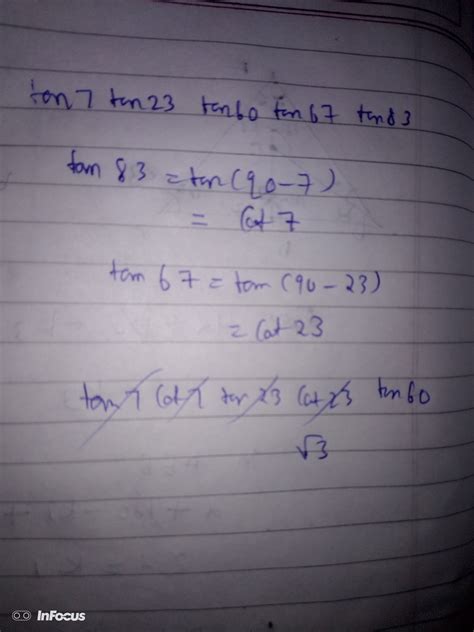 tan 7 tan 23 tan 60 tan 67 tan 83
tan 83 = tan (90 - 7)
= Cot 7
tan 67 = tan (90 - 23)
= Cot 23
tan 7 Cot 7 tan 23 Cot 23 tan 60
√3
InFocus